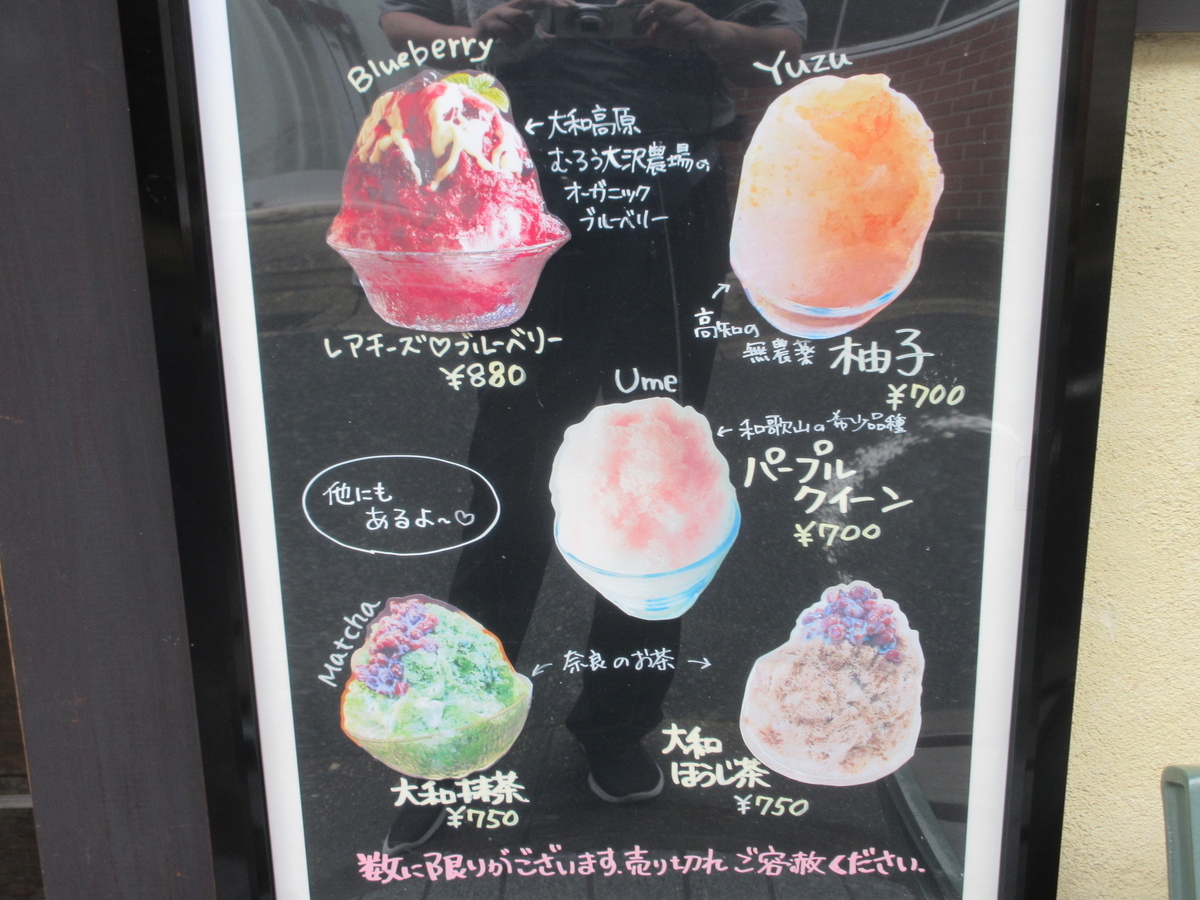 Blueberry
←大和高原
むろう大沢農場の
オーガニック
ブルーベリー
レアチーズ♡ブルーベリー
¥880
Yuzu
高知の
無農薬 柚子
¥700
Ume
←和歌山の希少品種
パープル
クイーン
¥700
他にも
あるよ~♡
Matcha
←奈良のお茶→
大和抹茶
¥750
大和
ほうじ茶
¥750
数に限りがございます.売り切れご容赦ください.